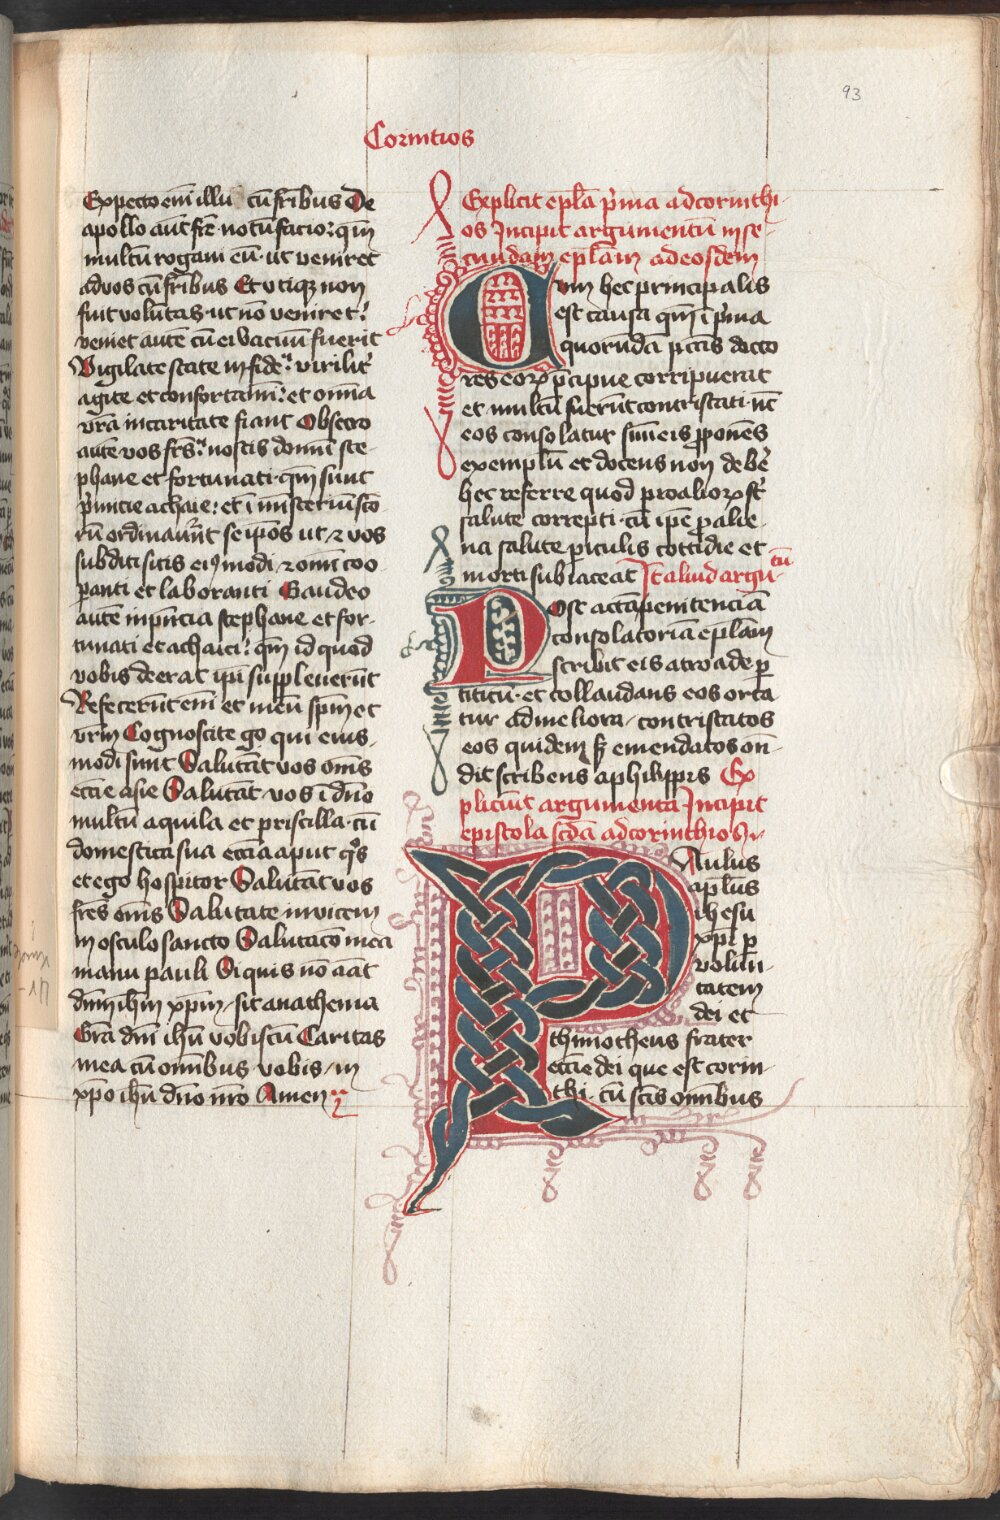 93
Corintios
Expecto em̄ illū cū fr̄ibus De
apollo aut̄ fr̄e notū facio: qm̄
multū rogaui eū· ut veniret
ad vos cū fr̄ibus Et vtiqꝫ non
fuit voluntas· ut nō veniret:
veniet aute cū ei vacuū fuerit
Vigilate state in fide: virilit̄
agite et confortam̄: et omīa
vr̄a in caritate fiant Obsecro
aute vos frs̄: nostis domū ste-
phane et fortunati· qm̄ sunt
p̄micie achaie: et ī misteriū sc̄o
rū ordinauer̄t se ip̄os ut ⁊ vos
subditi sitis eiꝰ modi ⁊ om̄i coo-
panti et laboranti Gaudeo
aute in pn̄cia stephane et for-
tunati et achaici: qm̄ id quod
vobis deerat ip̄i suppleuerūt
Refecerūt em̄ et meū spm̄ et
vrm̄ Cognoscite go qui eius-
modi sunt Salutāt vos om̄s
eccīe asie Salutāt vos ī dn̄o
multū aquila et priscilla· cū
domestica sua ecc̄ia aput q̊s
et ego hospitor Salutāt vos
fr̄es om̄s Salutate inuicem
in osculo sancto Salutac̄o mea
manu pauli Si quis nō amāt
dn̄m ih̄m xp̄m· sit anathema
Gr̄a dn̄i ih̄u vobiscū Caritas
mea cū om̄ibus vobis in
xp̄o ih̄u dn̄o nr̄o Amen
Explicit epl̄a p̄ma ad corinthi-
os Incipit argumentū in se-
cundam epl̄am ad eosdem
Cum hec principalis
est causa qm̄ ī p̄ma
quorundā pctīs docto
res eoꝝ p̄cipue corripuerat
et multū fuer̄ūt contristati· nc̄
eos consolatur suū eis pponēs
exemplū et docens non debē
hec referre quod pro alioꝝ st̄
salute correpti· cū ip̄e p alie-
na salute p̄iculis cottidie et
morti subiaceat It aliud argu-
tū
Post actā penitenciā
consolatoriā epl̄am
scribit eis a troade p
tititū· et collaudans eos orta
tur ad meliora· contristatos
eos quidem sꝫ emendatos on-
dit scribens a philippis Ex
pliciūt argumenta Incipit
epistola scd̄a ad corinthios
PAulus
apl̄us
ihesu
xp̄i p
volun-
tatem
dei et
thimotheus frater
eccīe dei que est corin-
thi· cū scīs om̄ibus